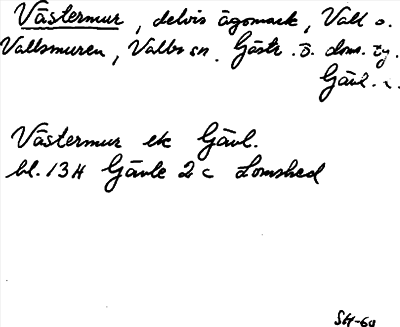 Västermur, delvis ägomark, Vall o.
Vallsmuren, Valbo sn. Gästr. ö. doms. tg.
Gävl. l.
Västermur ek Gävl.
bl. 13H Gävle 2c Lomshed
SH-60